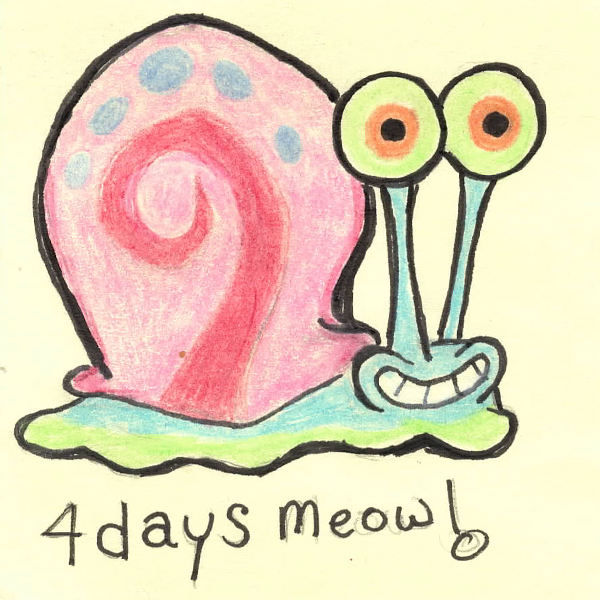 4 days meow!